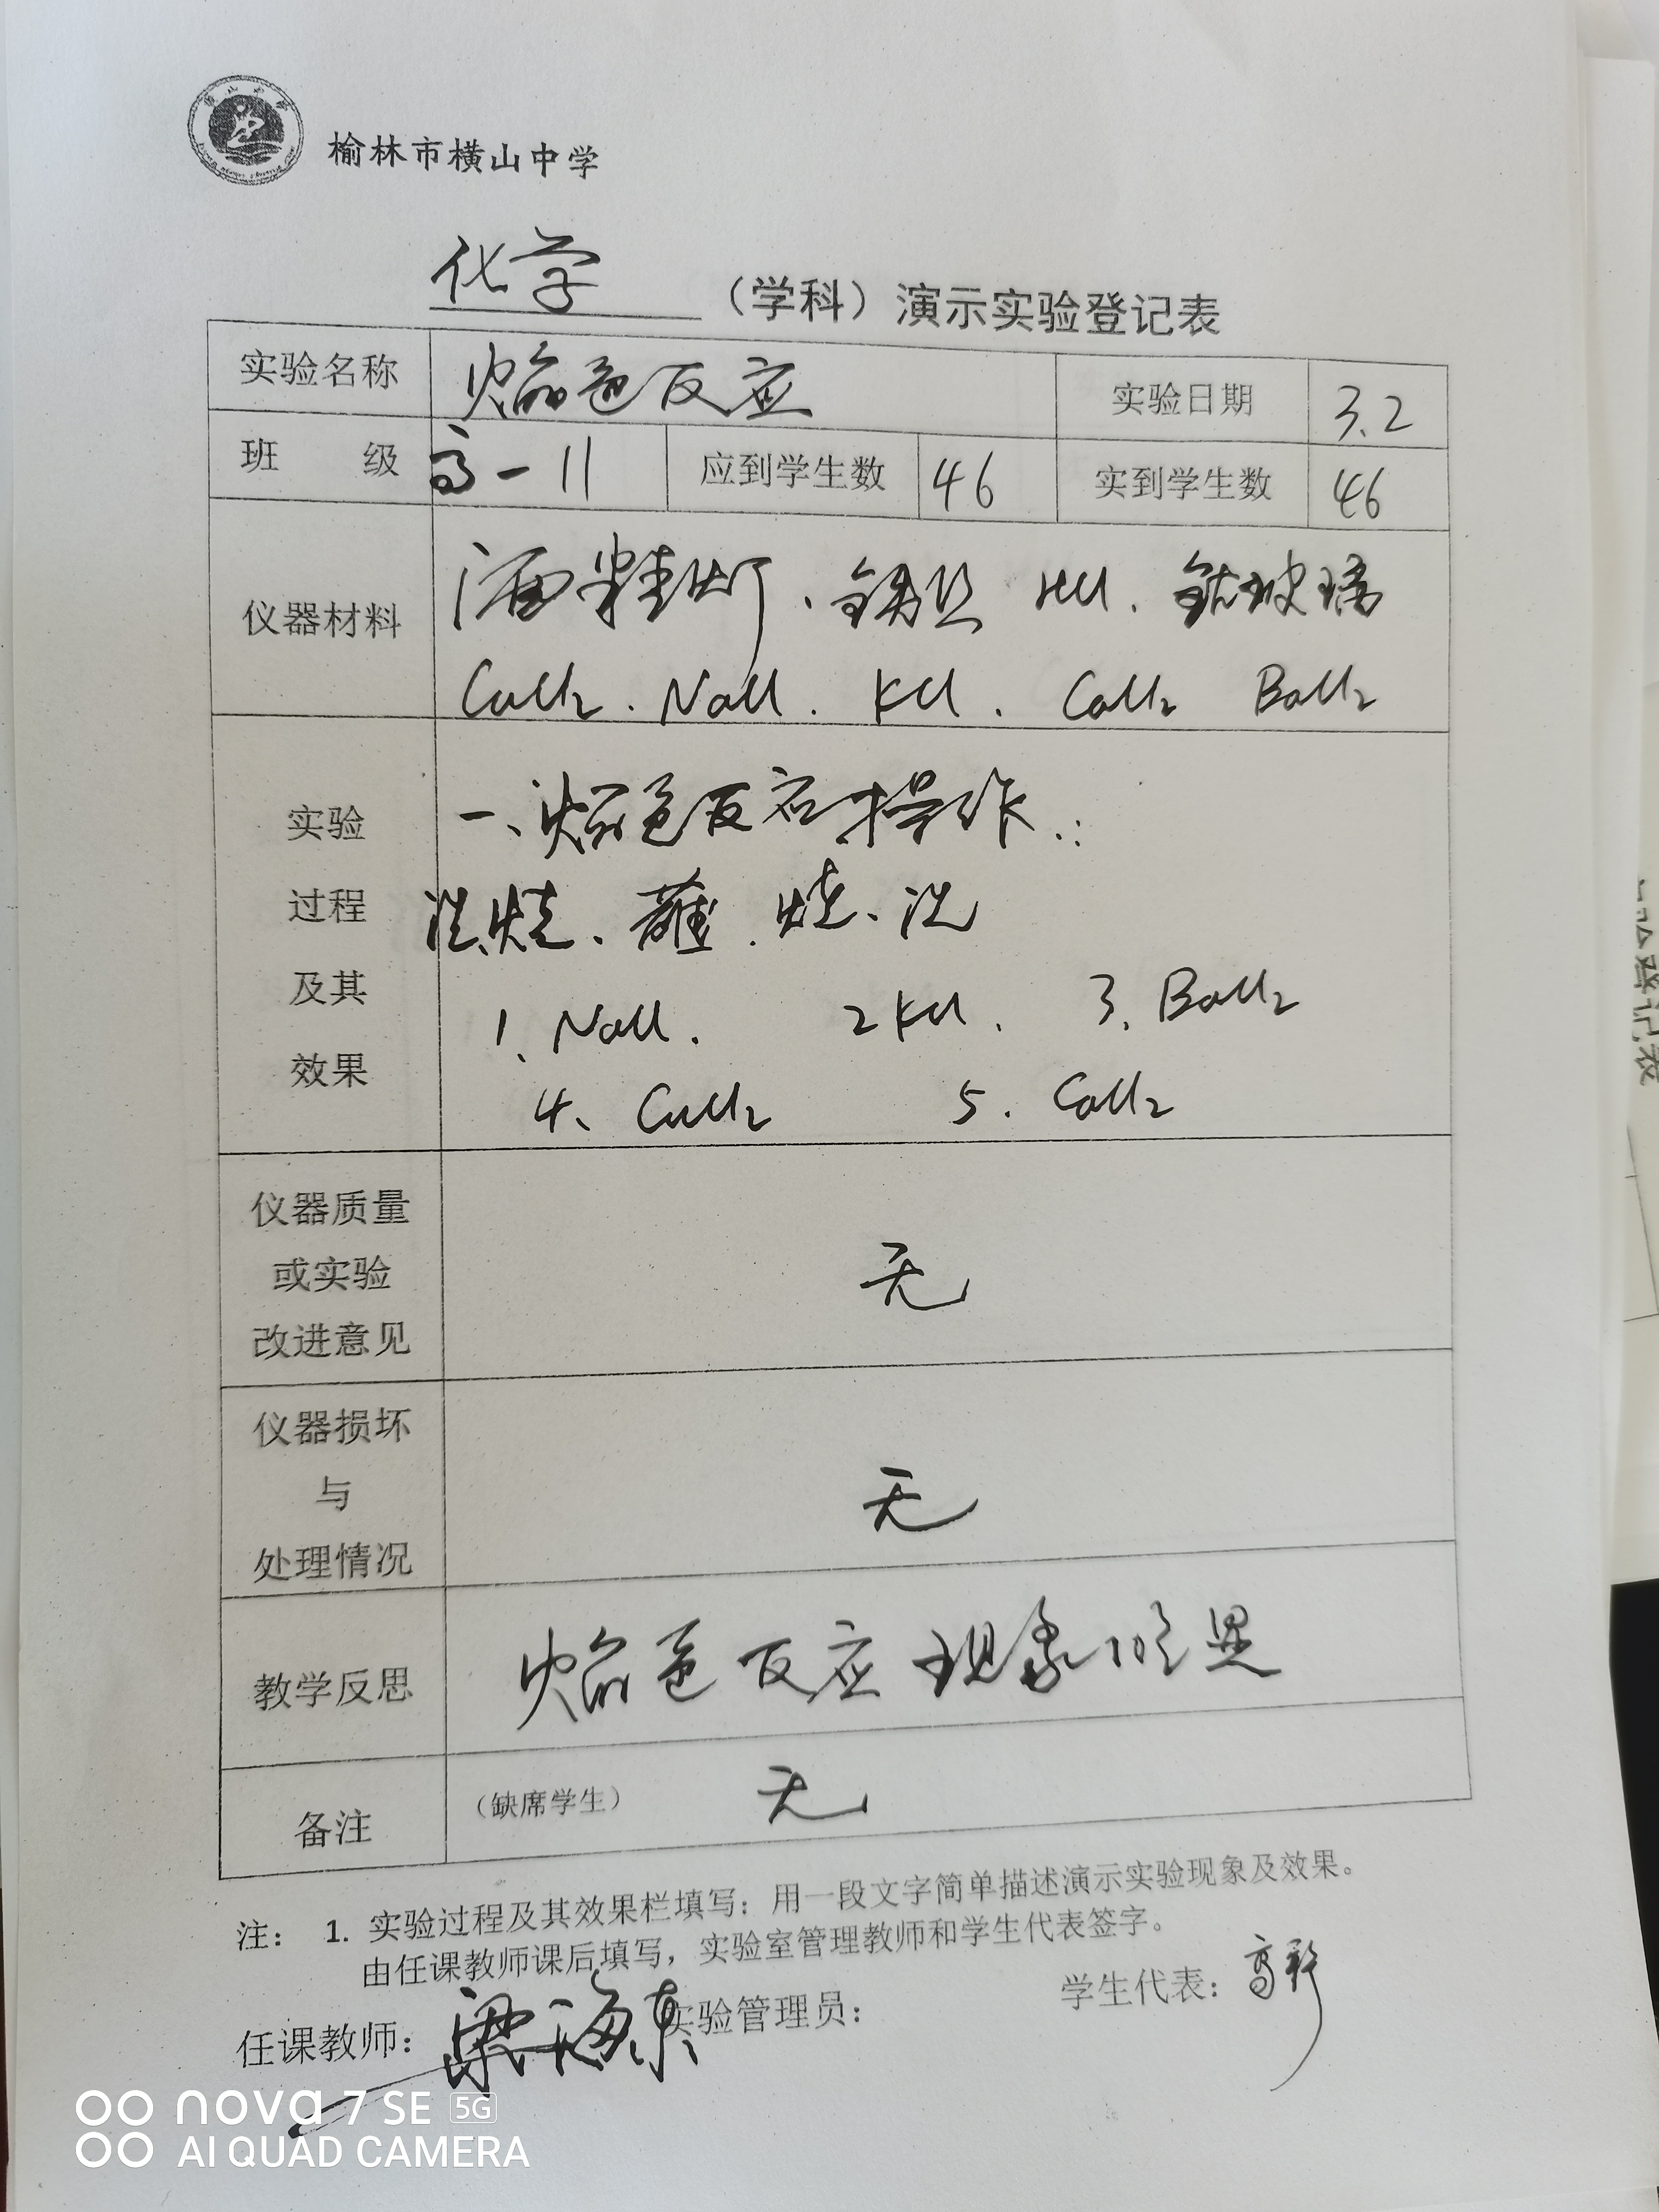 榆林市横山中学
化学 （学科）演示实验登记表
实验名称 焰色反应 实验日期 3.2
班 级 高一11 应到学生数 46 实到学生数 46
仪器材料 酒精灯、铂丝 HCl. 钴玻璃
CuCl₂. NaCl. KCl. CaCl₂ BaCl₂
实验
过程
及其
效果
一、焰色反应操作：
洗、烧、蘸、烧、洗
1、NaCl. 2 KCl. 3、BaCl₂
4、CuCl₂ 5. CaCl₂
仪器质量
或实验
改进意见
无
仪器损坏
与
处理情况
无
教学反思 焰色反应现象明显
备注 （缺席学生） 无
注： 1. 实验过程及其效果栏填写：用一段文字简单描述演示实验现象及效果。
由任课教师课后填写，实验室管理教师和学生代表签字。
任课教师： 梁海东 实验管理员： 学生代表：高
nova 7 SE 5G
AI QUAD CAMERA